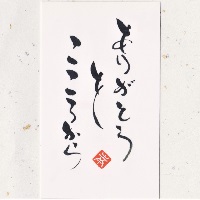 ありがとう
こころから